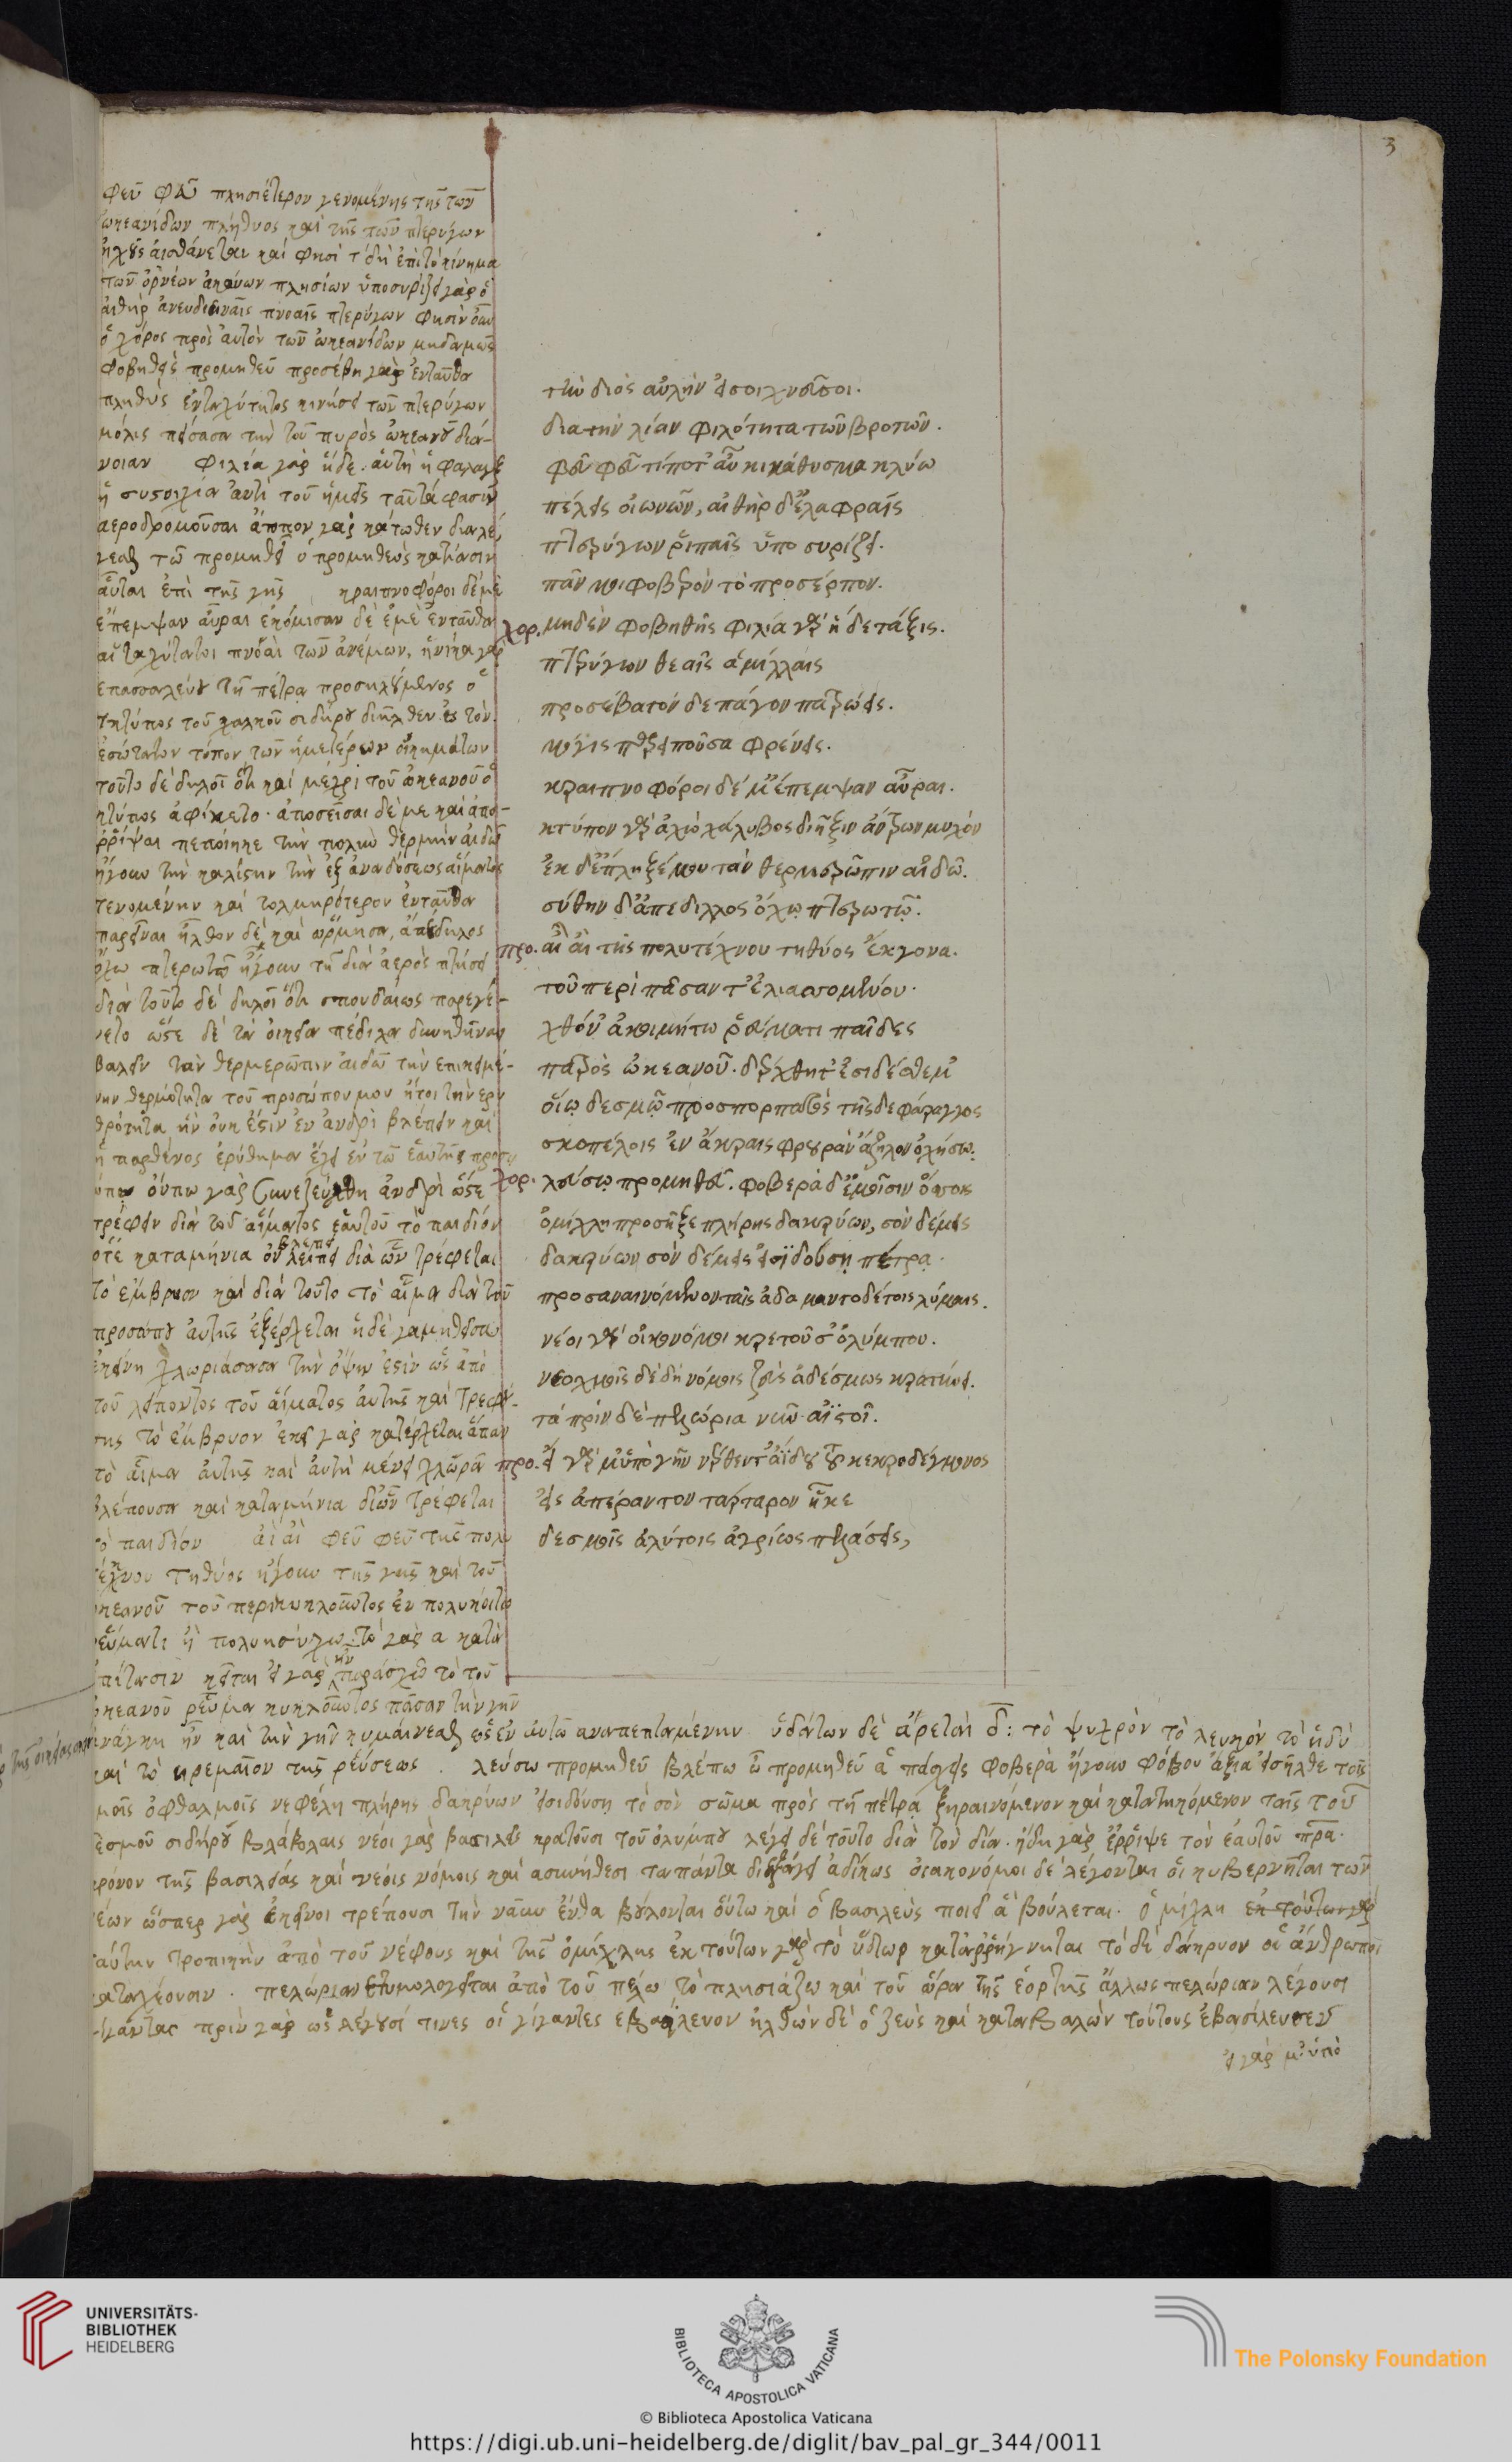 3
φεῦ φεῦ πλησιέτερον γενομένης τῆς τῶν
ὠκεανίδων πλήθυος καὶ τῆς τῶν πτερύγων
ἠχοῦς αἰσθάνεται καί φησι τί δὴ ἐπὶ τὸ κίνημα
τῶν ὀρνέων ἀκούων πλησίων ὑποσυρίζει γὰρ ὁ
αἰθὴρ πνοαῖς πτερύγων φησὶν οὖν
ὁ χόρος πρὸς αὐτὸν τῶν ὠκεανίδων μηδαμῶς
φοβηθεὶς προμηθεῦ προσέβη γὰρ ἐνταῦθα
πληθὺς ἐν ταχύτητος κινήσει τῶν πτερύγων
μόλις πείσασα τὴν τοῦ πυρὸς ὠκεανοῦ διά-
νοιαν φιλία γὰρ ἥδε. αὕτη ἡ φάλαγξ
ἡ συστοιχία ἀντὶ τοῦ ἡμεῖς ταῦτά φασιν
αεροδρομοῦσαι ἄτοπον γὰρ κάτωθεν διαλέ-
γεσθαι τῷ προμηθεῖ ὁ προμηθεὺς κατιάσιν
αὗται ἐπὶ τῆς γῆς κραιπνοφόροι δέ με
ἔπεμψαν αὖραι ἐκόμισαν δὲ ἐμὲ ἐνταῦθα
αἱ ταχύταται πνοαὶ τῶν ἀνέμων, ἡνίκα γὰρ
ἐπασσαλεύου τῇ πέτρᾳ προσηλούμενος ὁ
κτύπος τοῦ χαλκοῦ σιδήρου διῆλθεν εἰς τὸν
ἐσώτατον τόπον τῶν ἡμετέρων οἰκημάτων
τοῦτο δὲ δηλοῖ ὅτι καὶ μέχρι τοῦ ὠκεανοῦ ὁ
κτύπος ἀφίκετο. ἀποσεῖσαι δέ με καὶ ἀπο-
ρρίψαι πεποίηκε τὴν θερμὴν αἰδῶ
ἤγουν τὴν καλίστην τὴν ἐξ ἀναδόσεως αἵματος
γενομένην καὶ τολμηρότερον ἐνταῦθα
παρεῖναι ἦλθον δὲ καὶ ὥρμησα, ἀπέδιλος
ὄχῳ πτερωτῷ ἤγουν τῇ διὰ ἀερὸς πτήσει
διὰ τοῦτο δὲ δηλοῖ ὅτι σπουδαίως παρεγέ-
νετο ὥστε δὲ τὰ οἰκεῖα πέδιλα δυνηθῆναι
βαλεῖν τὰν θερμερῶπιν αἰδῶ τὴν ἐπικειμέ-
νην θερμότητα τοῦ προσώπου μου ἤτοι τὴν ἐρυ
θρότητα ἣν οὐκ ἔστιν ἐν ἀνδρὶ βλέπειν καὶ
ἡ παρθένος ἐρύθημα ἔχει ἐν τῷ ἑαυτῆς προσώ
οὔπω γὰρ συνεζεύχθη ἀνδρὶ ὥστε
τρέφειν διὰ τοῦ αἵματος ἑαυτοῦ τὸ παιδίον
ὅτε καταμήνια οὐ βλέπει διὰ ὧν τρέφεται
τὸ ἔμβρυον καὶ διὰ τοῦτο τὸ αἷμα διὰ τοῦ
προσώπου αὐτῆς ἐξέρχεται ἡ δὲ γαμηθεῖσα
ἐκείνη χλωριάσασα τὴν ὄψιν ἐστὶν ὡς ἀπὸ
τοῦ λείποντος τοῦ αἵματος αὐτῆς καὶ τρεφού-
σης τὸ ἔμβρυον ἐκεῖ γὰρ κατέρχεται ἅπαν
τὸ αἷμα αὐτῆς καὶ αὐτὴ μένει χλωρὰν
βλέπουσα καὶ καταμήνια δι ὧν τρέφεται
τὸ παιδίον αἲ αἲ φεῦ φεῦ τῆς πολυ
τέχνου τηθύος ἤγουν τῆς γῆς καὶ τοῦ
ὠκεανοῦ τοῦ περικυκλοῦντος ἐν πολυκοίτῳ
ῥεύματι ἢ πολυησύχῳ. τὸ γὰρ α κατὰ
ἐπίτασιν κεῖται εἰ γὰρ ἦν παράσχῃ τὸ τοῦ
ὠκεανοῦ ῥεῦμα κυκλοῦντος πᾶσαν τὴν γῆν
ἀνάγκη ἦν καὶ τὴν γῆν κυμαίνεσθαι ὡς ἐν αὐτῷ αναπεπταμένην ὑδάτων δὲ ἀρεταὶ δ: τὸ ψυχρὸν τὸ λευκὸν τὸ ἡδὺ
καὶ τὸ ἠρεμαῖον τῆς ρεύσεως. λεύσω προμηθεῦ βλέπω ὦ προμηθεῦ ἃ πάσχεις φοβερὰ ἤγουν φόβου ἄξια εἰσῆλθε τοῖς
ἐμοῖς ὀφθαλμοῖς νεφέλη πλήρης δακρύων εἰσιδούσῃ τὸ σὸν σῶμα πρὸς τῇ πέτρᾳ ξηραινόμενον καὶ κατατηκόμενον ταῖς τοῦ
δεσμοῦ σιδήρου βλάβαις νέοι γὰρ βασιλεῖς κρατοῦσι τοῦ ὀλύμπου λέγει δὲ τοῦτο διὰ τὸν δία. ἤδη γὰρ ἔρριψε τὸν ἑαυτοῦ πρα
κρόνον τῆς βασιλείας καὶ νέοις νόμοις καὶ ασυνήθεσι τα πάντα διεξάγει ἀδίκως οἰακονόμοι δὲ λέγονται οἱ κυβερνῆται τῶν
νεῶν ὥσπερ γὰρ ἐκεῖνοι τρέπουσι τὴν ναῦν ἔνθα βούλονται οὕτω καὶ ὁ βασιλεὺς ποιεῖ ἃ βούλεται. ὁμίχλη ἐκ τούτων γὰρ
ταύτην τροπικὴν ἀπὸ τοῦ νέφους καὶ τῆς ὁμίχλης ἐκ τούτων γὰρ τὸ ὕδωρ καταρρήγνυται τὸ δὲ δάκρυον οἱ ἄνθρωποι
καταχέουσιν. πελώριαν ἐτυμολογεῖται ἀπὸ τοῦ πέλω τὸ πλησιάζω καὶ τοῦ ὥραν τῆς ἑορτῆς ἄλλως πελώριαν λέγουσι
γίγαντας πρὶν γὰρ ὡς λέγουσί τινες οἱ γίγαντες ἐβασίλευον ἐλθὼν δὲ ὁ ζεὺς καὶ καταβαλὼν τούτους ἐβασίλευσεν
εἰ γὰρ μ' ὑπὸ
τὴν διὸς αὐλὴν εἰσοιχνεῦσοι.
δια τὴν λίαν φιλότητα τῶν βροτῶν.
φεῦ φεῦ τί ποτ' αὖ κινάθυσμα κλύω
πέλας οἰωνῶν, αἰθὴρ δ' ἐλαφραῖς
πτερύγων ῥιπαῖς ὑποσυρίζει.
πᾶν μοι φοβερὸν τὸ προσέρπον.
χορ. μηδὲν φοβηθῇς φιλία γὰρ ἥδε τάξις.
πτερύγων θεαῖς ἁμίλλαις
προσέβα τόνδε πάγον πατρώας.
μόγις παρειποῦσα φρένας.
κραιπνοφόροι δέ μ' ἔπεμψαν αὖραι.
κτύπου γὰρ ἀχὼ χάλυβος διῆξεν ἄντρων μυχόν
ἐκ δ' ἔπληξέ μου τὰν θερμερῶπιν αἰδῶ.
σύθην δ' ἀπέδιλλος ὄχῳ πτερωτῷ.
προ. αἲ αἲ τῆς πολυτέχνου τηθύος ἔκγονα.
τοῦ περὶ πᾶσαν τ' ἑλισσομένου.
χθόν' ἀκοιμήτῳ ῥεύματι παῖδες
πατρὸς ὠκεανοῦ. δέρχθητ' ἐσιδέσθε μ'
οἵῳ δεσμῷ προσπορπατὸς τῆσδε φάραγγος
σκοπέλοις ἐν ἄκραις φρουρὰν ἄζηλον ὀχήσω.
χορ. λεύσω προμηθεῦ. φοβερὰ δ' ἐμοῖσιν ὄσσοις
ὁμίχλη προσῆξε πλήρης δακρύων, σὸν δέμας
δακρύων σὸν δέμας εἰσϊδούσῃ πέτρᾳ.
προσαυαινόμενον ταῖς ἀδαμαντοδέτοις λύμαις.
νέοι γὰρ οἰακονόμοι κρατοῦσ' ὀλύμπου.
νεοχμοῖς δὲ δὴ νόμοις ζεὺς ἀδέσμως κρατύνει.
τὰ πρὶν δὲ πελώρια νῦν αἰστοῖ.
προ. εἰ γάρ μ' ὑπὸ γῆν νέρθεν τ' ἀΐδου τοῦ νεκροδέγμονος
εἰς ἀπέραντον τάρταρον ἧκε
δεσμοῖς ἀλύτοις ἀγρίως πελάσας,
UNIVERSITÄTS-
BIBLIOTHEK
HEIDELBERG
BIBLIOTECA APOSTOLICA VATICANA
The Polonsky Foundation
© Biblioteca Apostolica Vaticana
https://digi.ub.uni-heidelberg.de/diglit/bav_pal_gr_344/0011